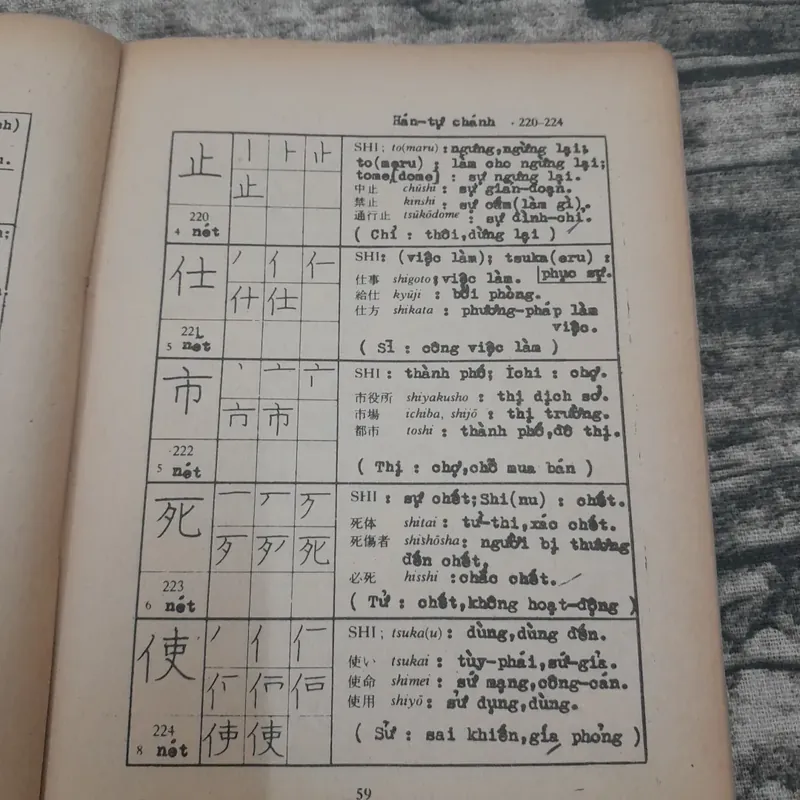 Hán-tự chánh . 220-224
止
220
4 nét
SHI; to(maru) : ngưng,ngừng lại;
to(meru) : làm cho ngừng lại;
tome[dome] : sự ngưng lại.
中止 chūshi : sự gián-đoạn.
禁止 kinshi : sự cấm(làm gì).
通行止 tsūkōdome : sự đình-chỉ.
( Chỉ : thôi,dừng lại )
仕
221
5 nét
SHI: (việc làm); tsuka(eru) :
phục sự.
仕事 shigoto; việc làm.
給仕 kyūji : bồi phòng.
仕方 shikata : phương-pháp làm
việc.
( Sĩ : công việc làm )
市
222
5 nét
SHI : thành phố; Ichi : chợ.
市役所 shiyakusho : thị dịch sở.
市場 ichiba, shijō : thị trường.
都市 toshi : thành phố,đô thị.
( Thị : chợ,chỗ mua bán )
死
223
6 nét
SHI : sự chết;Shi(nu) : chết.
死体 shitai : tử-thi,xác chết.
死傷者 shishōsha: người bị thương
đến chết.
必死 hisshi :chắc chết.
( Tử : chết,không hoạt-động )
使
224
8 nét
SHI; tsuka(u) : dùng,dùng đến.
使い tsukai : tùy-phái,sứ-giả.
使命 shimei : sứ mạng,công-cán.
使用 shiyō : sử dụng,dùng.
( Sử : sai khiến,giả phỏng )
59